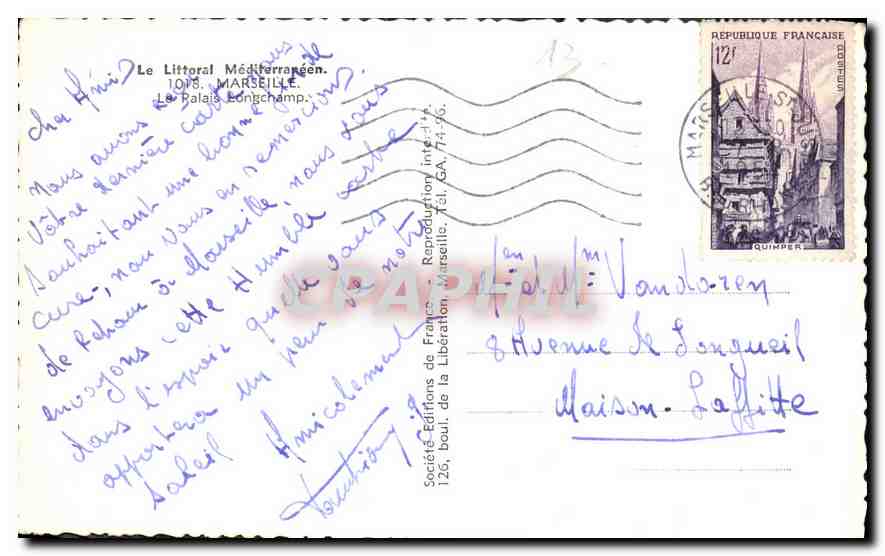 Le Littoral Méditerranéen.
1018. MARSEILLE.
Le Palais Longchamp.
Cher Amis
Nous avions reçu
Vôtre dernière carte, vous
souhaitant une bonne fin de
cure, nous vous en remercions.
de Retour à Marseille, nous vous
envoyons cette Humble carte
dans l'espoir qu'elle vous
apportera un peu de notre
soleil Amicalement
Société Editions de France - Reproduction interdite.
126, boul. de la Libération, Marseille. Tél. GA. 74-96.
13
RÉPUBLIQUE FRANÇAISE
12F
POSTES
QUIMPER
MARSEILLE ST
CPAPHIL
et Mme Vandoren
8 Avenue de Longueil
Maison-Laffitte